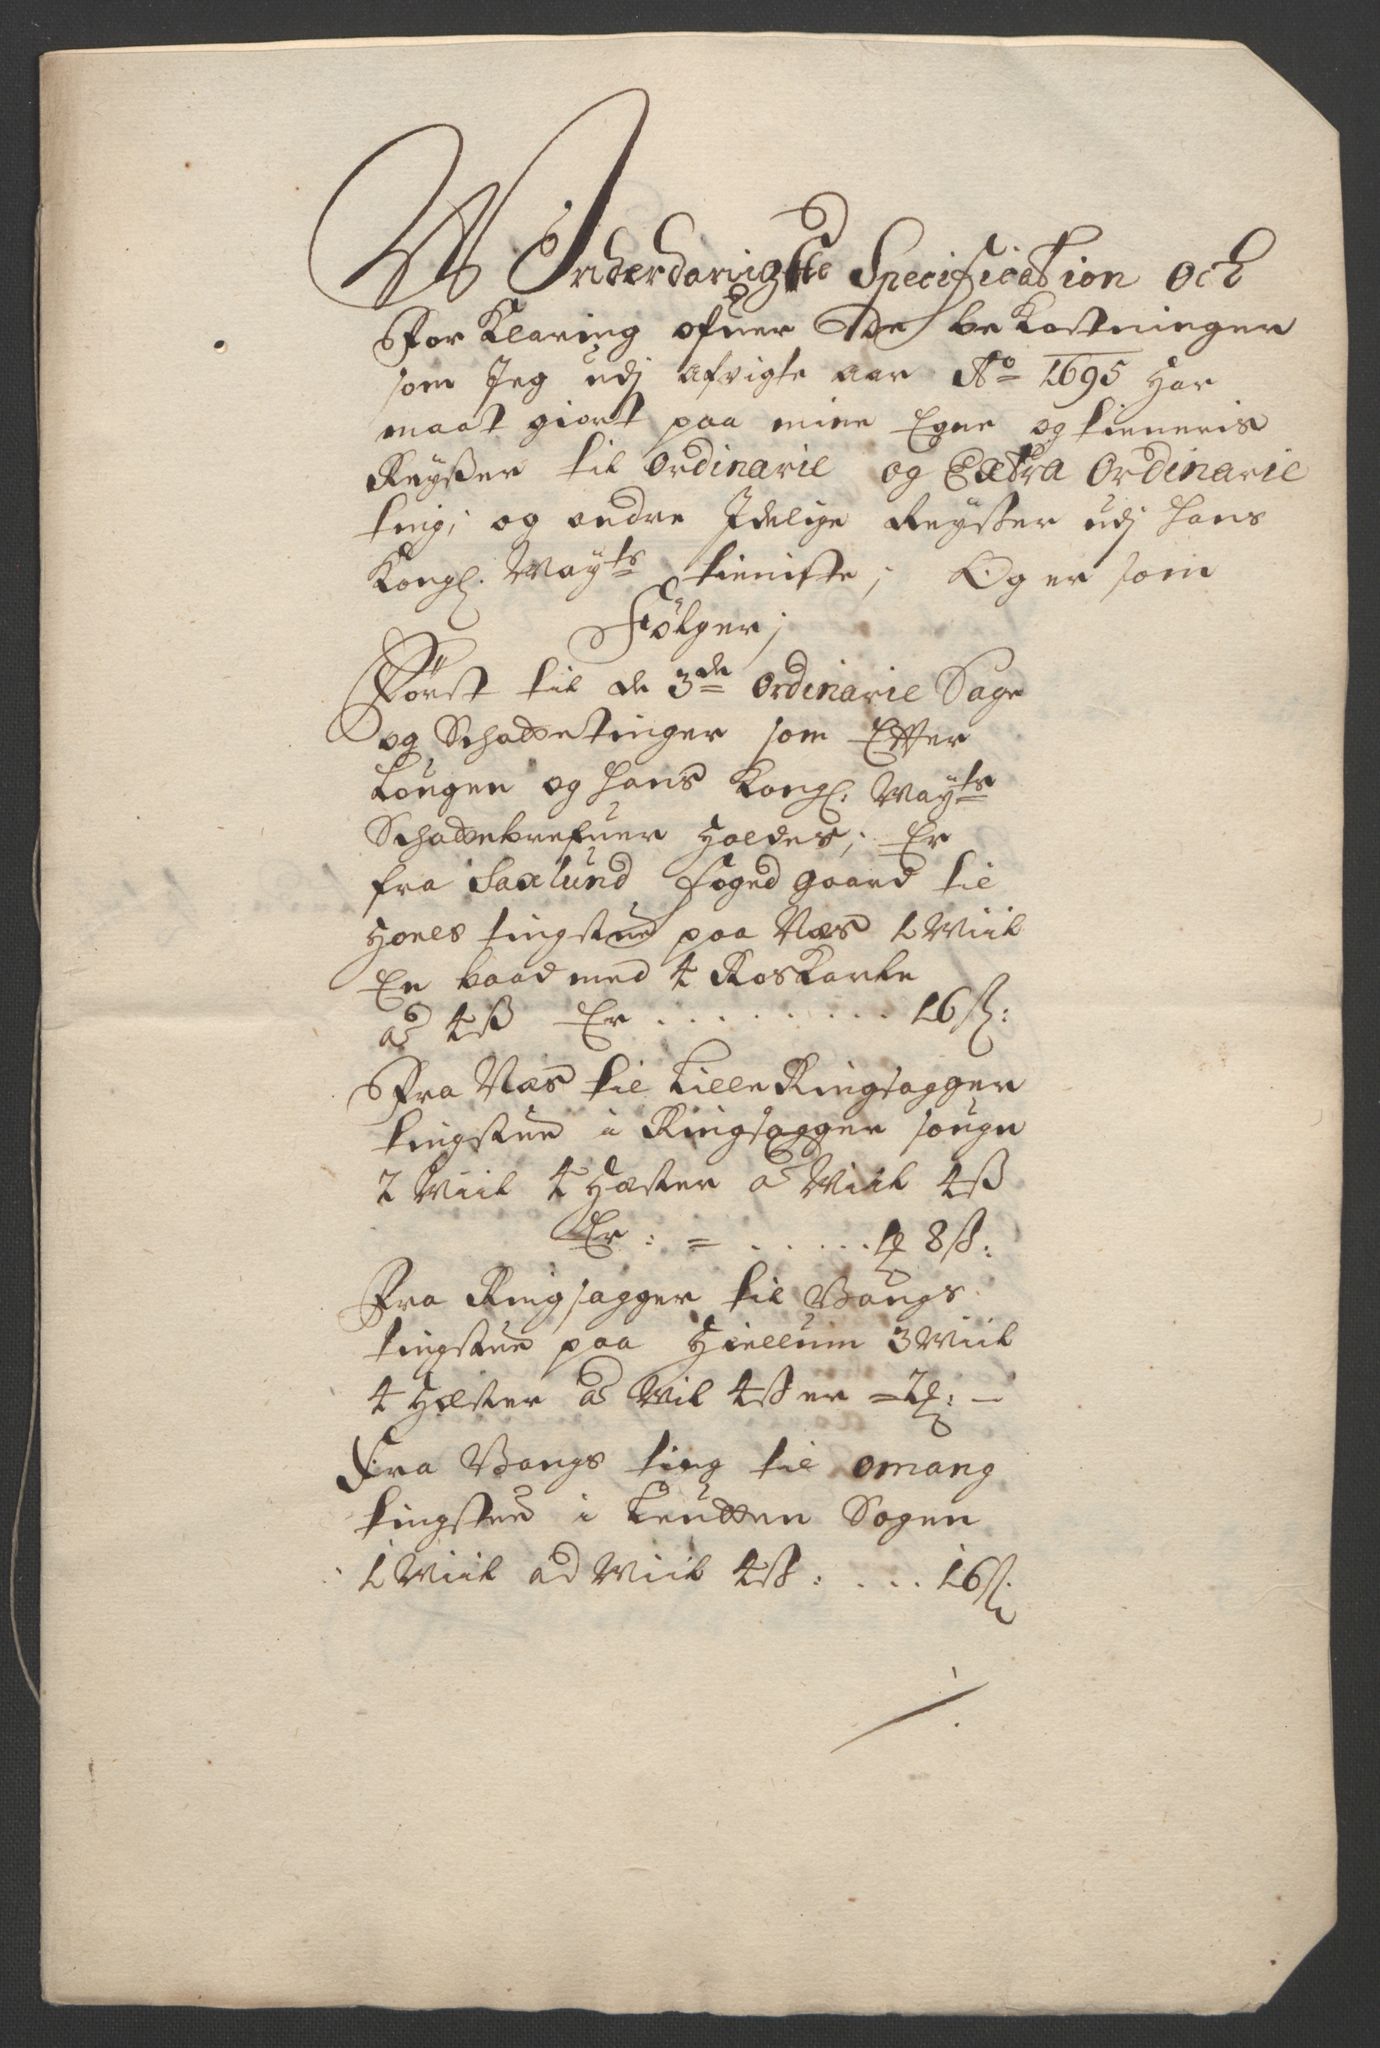 Vnderdanigste Specification och
Forklaring ofuer de bekostninger
som Jeg udj afvigte aar Ao 1695 har
maat giort paa mine Egne og tieneris
Reyßer til Ordinarie og Extra Ordinarie
ting; og andre Idelige Reyßer udj hans
Kongl. Mayts tieniste; Og er som
Fölger;
Först til de 3de Ordinarie Sage
og Schattetinger som Effter
Lougen og hans Kongl: Mayts
Schattebrefuer holdes; Er
fra Saxlund foged gaard til
Hoels tingstue paa Næs 1 Miil
En baad med 4 Roskarle
ad 4ß Er . . . . . . . . . 16ß:
Fra Næs til Lille Ringsagger
tingstue i Ringsagger sougn
2 Miil 4 Hæster ad Miil 4ß
Er : = . . . . . 1 8ß:
Fra Ringsagger til Vangs
tingstue paa Hiellum 3 Miil
4 Hæster ad Mil 4ß er = 2: —
Fra Vangs ting til Omang
tingstue i Leutten Sogen
1 Miil ad Miil 4ß: . . . 16ß: